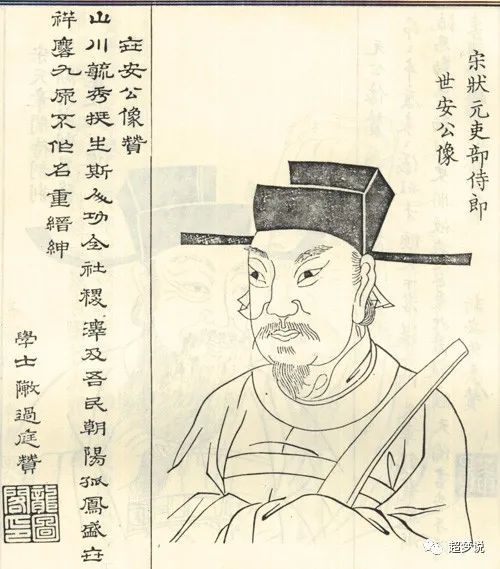 宋狀元吏部侍郎
世安公像
世安公像贊
山川毓秀挺生斯人功全社稷澤及吾民朝陽孤鳳盛世
祥麐九原不作名重縉紳
學士敶過庭贊
龍圖
閣印
超梦说